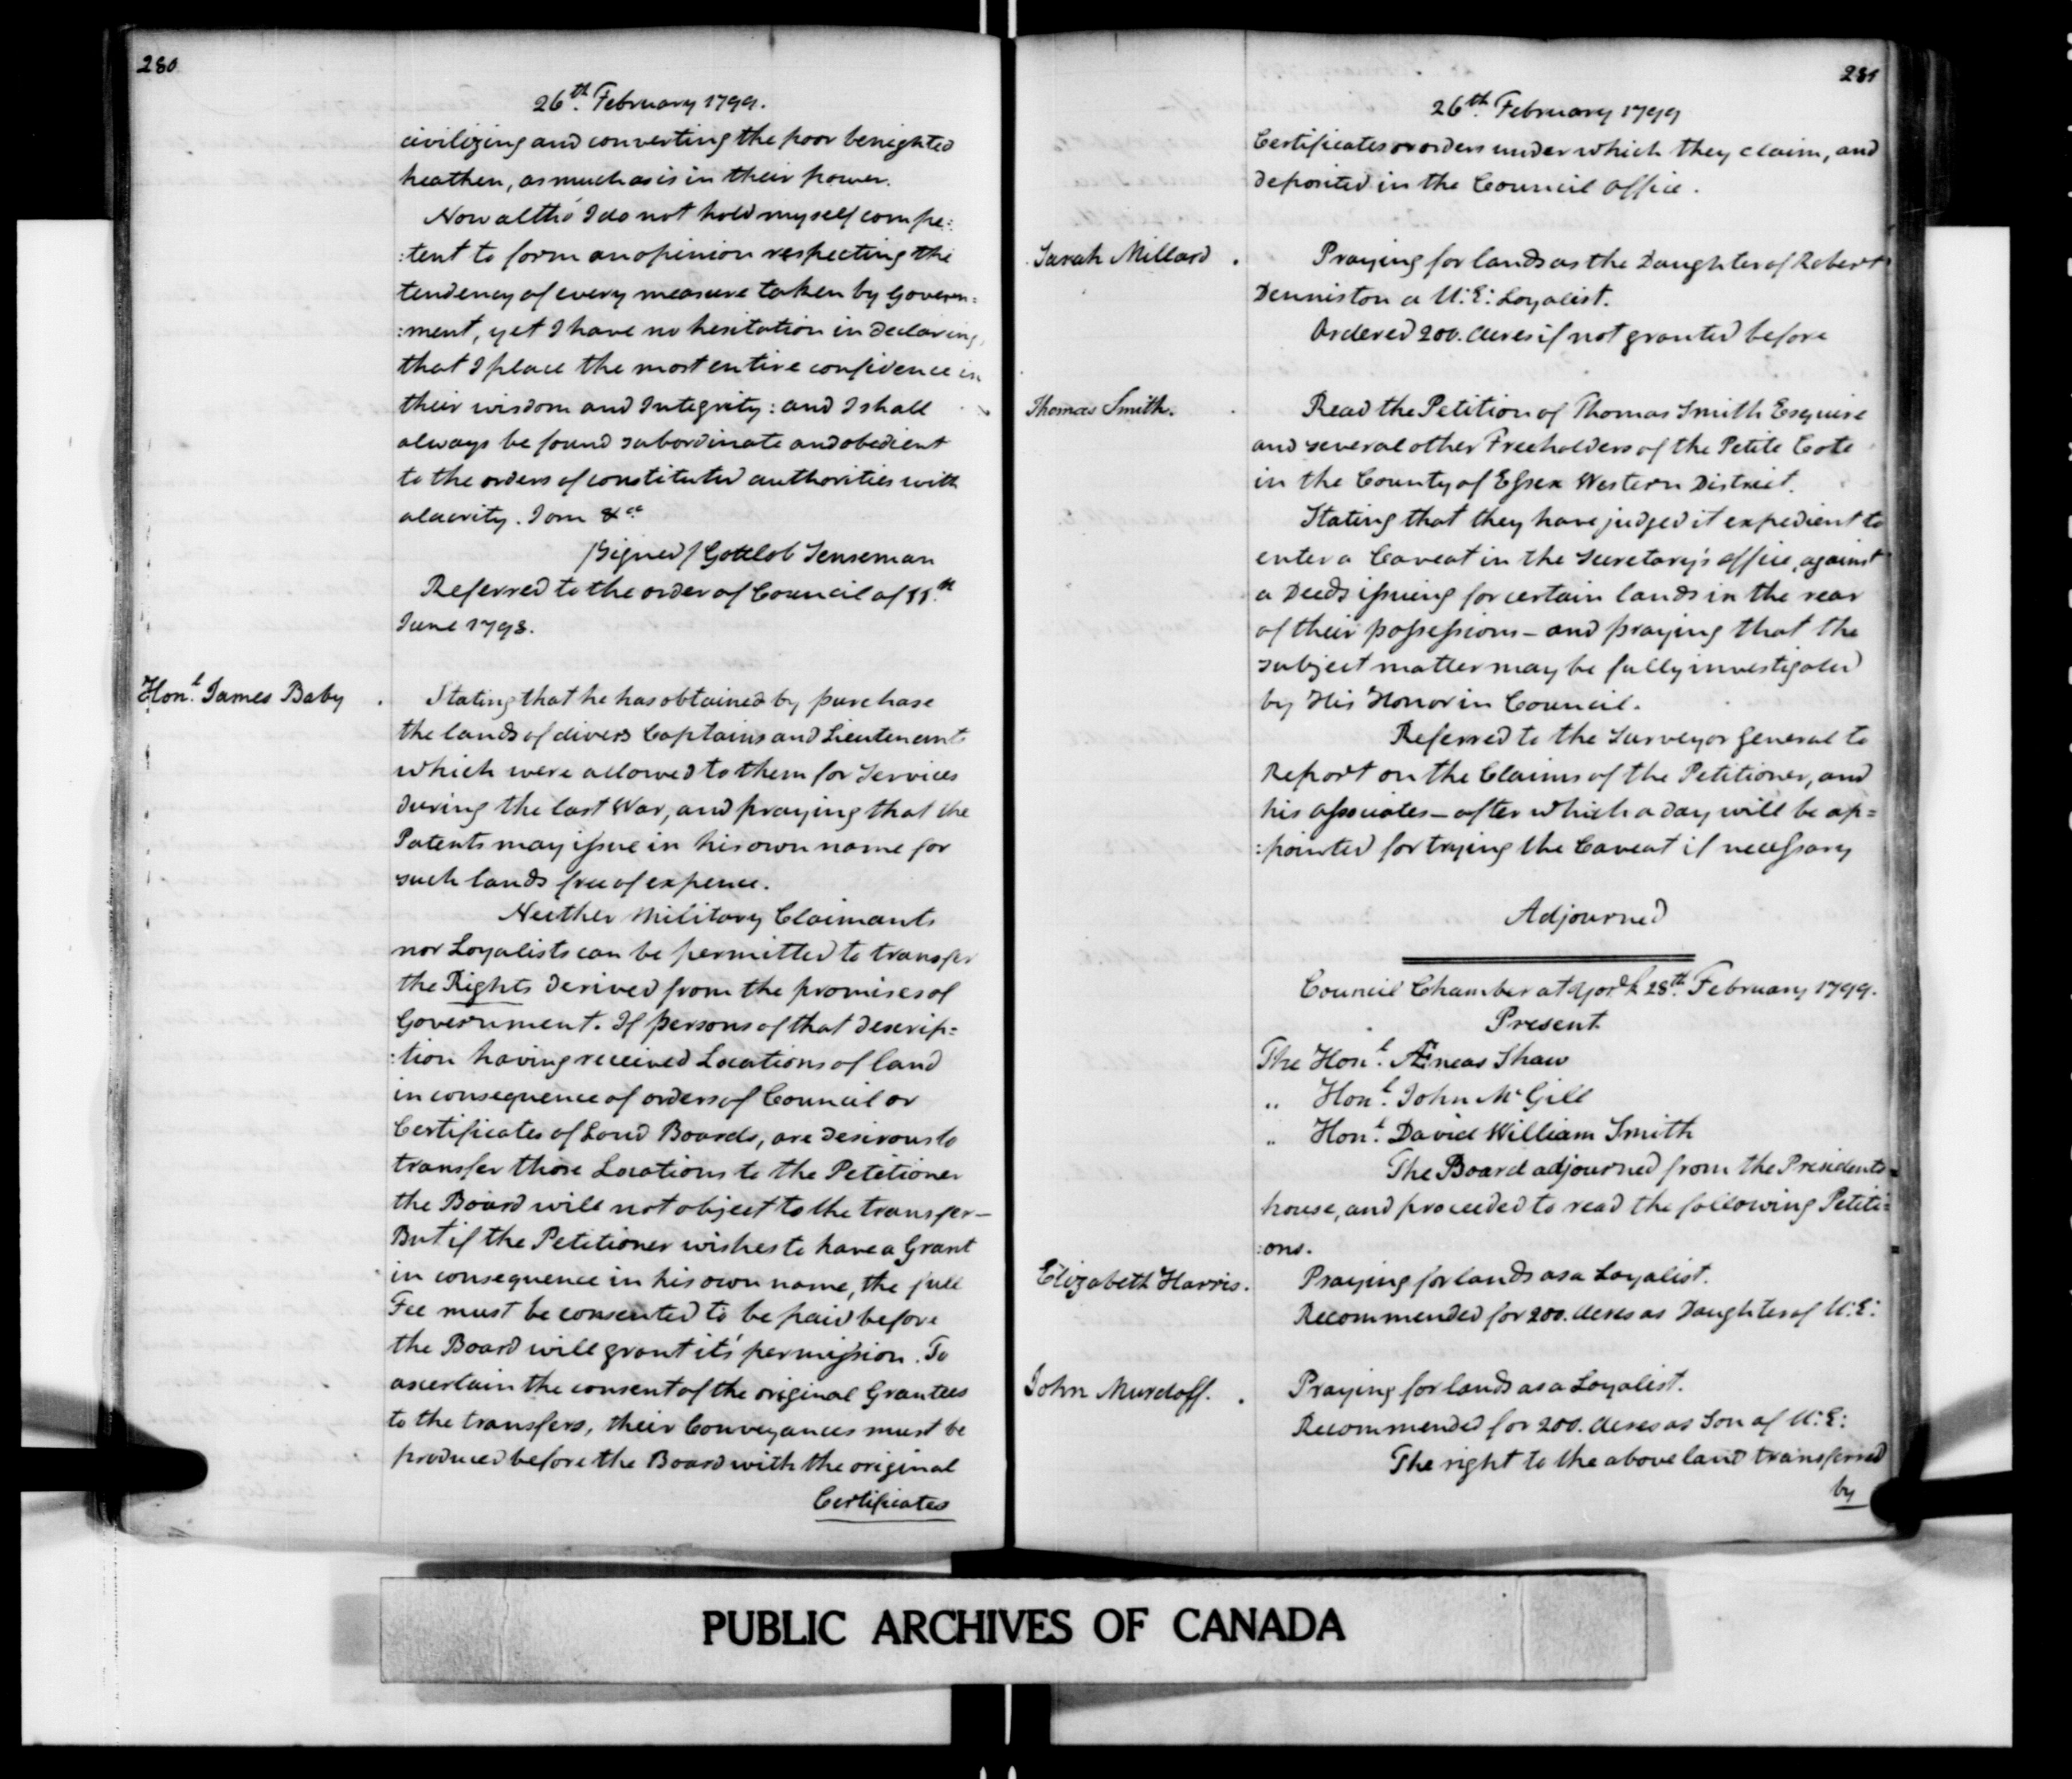 280
26th. February 1799.
civilizing and converting the poor benighted
heathen, as much as is in their power.
Now altho' I do not hold myself compe:
:tent to form an opinion respecting the
tendency of every measure taken by Govern:
:ment, yet I have no hesitation in declaring,
that I place the most entire confidence in
their wisdom and Integrity: and I shall
always be found subordinate and obedient
to the orders of constituted authorities with
alacrity. I am &ca
/Signed/ Gottlob Senseman
Referred to the order of Council of 11th
June 1798.
Honl. James Baby . Stating that he has obtained by purchase
the lands of divers Captains and Lieutenants
which were allowed to them for Services
during the last War, and praying that the
Patents may issue in his own name for
such lands free of expence.
Neither Military Claimants
nor Loyalists can be permitted to transfer
the Rights derived from the promises of
Government. If persons of that descrip:
:tion having received Locations of land
in consequence of orders of Council or
Certificates of Land Boards, are desirous to
transfer those Locations to the Petitioner
the Board will not object to the transfer—
But if the Petitioner wishes to have a Grant
in consequence in his own name, the full
Fee must be consented to be paid before
the Board will grant it's permission. To
ascertain the consent of the original Grantees
to the transfers, their Conveyances must be
produced before the Board with the original
Certificates
281
26th. February 1799
Certificates or orders under which they claim, and
deposited in the Council office.
Sarah Millard . Praying for lands as the Daughter of Robert
Denniston a U:E: Loyalist.
Ordered 200. Acres if not granted before
Thomas Smith. Read the Petition of Thomas Smith Esquire
and several other Freeholders of the Petite Cote
in the County of Essex Western District.
Stating that they have judged it expedient to
enter a Caveat in the Secretary's office, against
a Deeds issuing for certain lands in the rear
of their possessions — and praying that the
subject matter may be fully investigated
by His Honor in Council.
Referred to the Surveyor General to
Report on the Claims of the Petitioner, and
his associates — after which a day will be ap=
:pointed for trying the Caveat if necessary
Adjourned
Council Chamber at York 28th. February 1799.
Present
The Honl. Æneas Shaw
" Honl. John McGill
" Honl. David William Smith
The Board adjourned from the Presidents
house, and proceeded to read the following Petiti:
:ons.
Elizabeth Harris. Praying for lands as a Loyalist.
Recommended for 200. Acres as Daughter of U:E:
John Murdoff. . Praying for lands as a Loyalist.
Recommended for 200. Acres as Son of U:E:
The right to the above land transferred
by
PUBLIC ARCHIVES OF CANADA